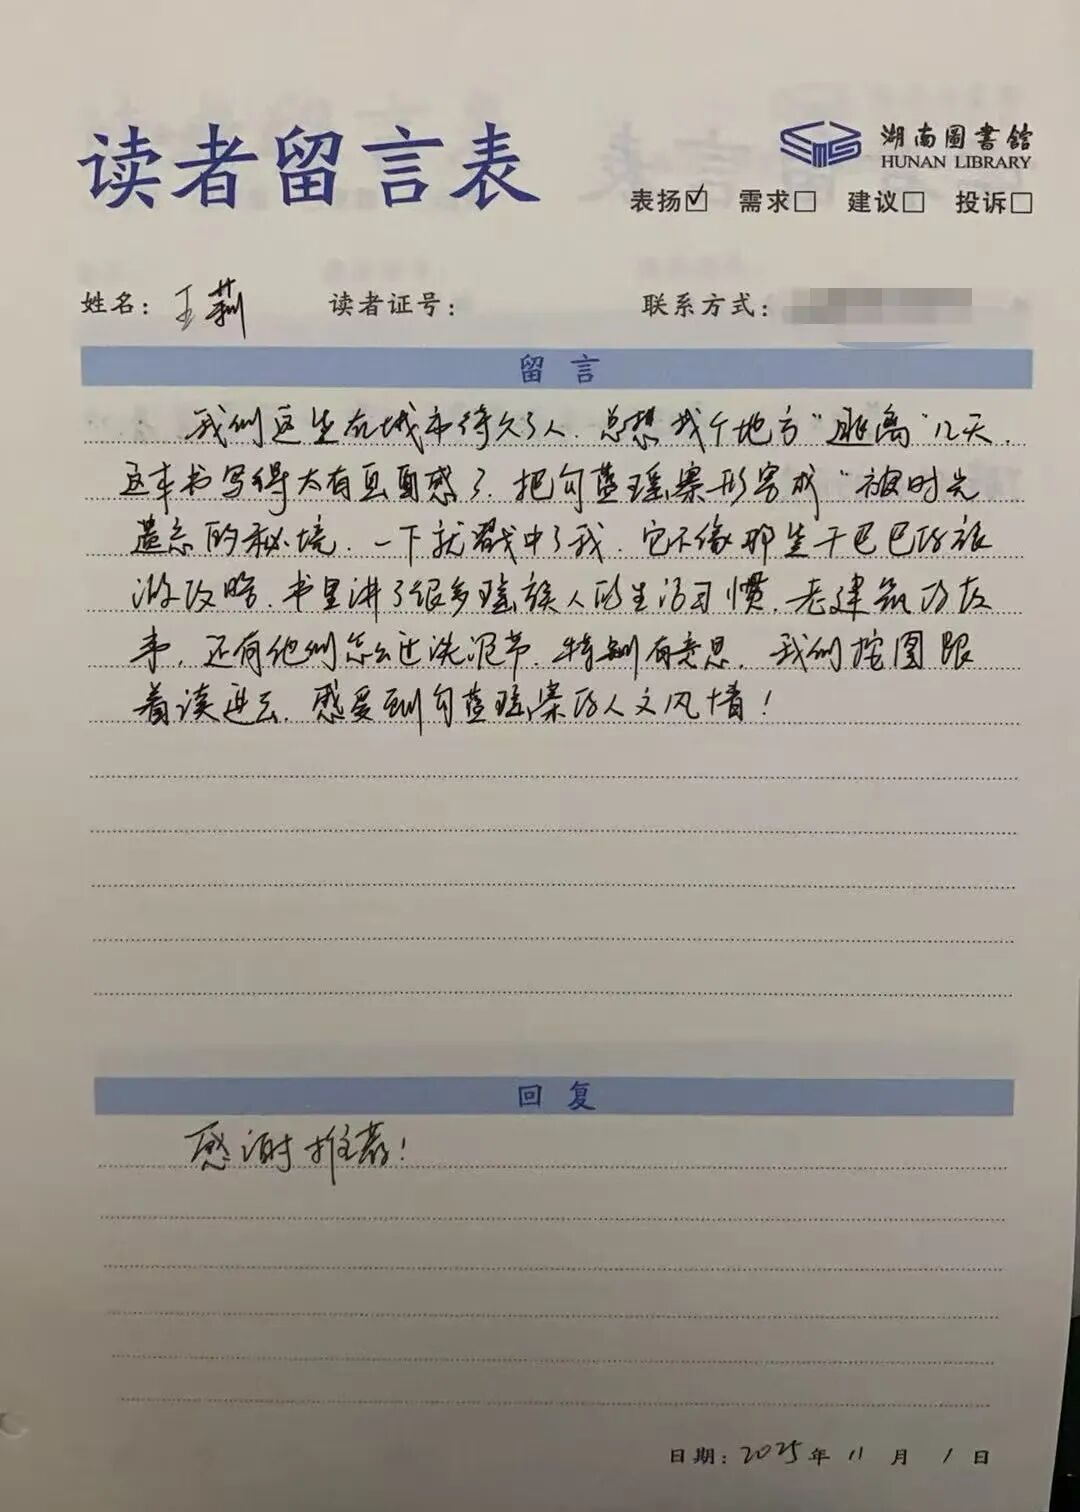 读者留言表
湖南圖書館
HUNAN LIBRARY
表扬☑ 需求□ 建议□ 投诉□
姓名：王莉 读者证号： 联系方式：
留言
我们这些在城市待久了人，总想找个地方“逃离”几天，
这本书写得太有画面感了，把勾蓝瑶寨形容成“被时光
遗忘的秘境，一下就戳中了我，它不像那些干巴巴的旅
游攻略，书里讲了很多瑶族人的生活习惯，老建筑的故
事，还有他们怎么过洗泥节，特别有意思，我们按图跟
着读进去，感受到勾蓝瑶寨的人文风情！
回复
感谢推荐！
日期：2025年11月1日